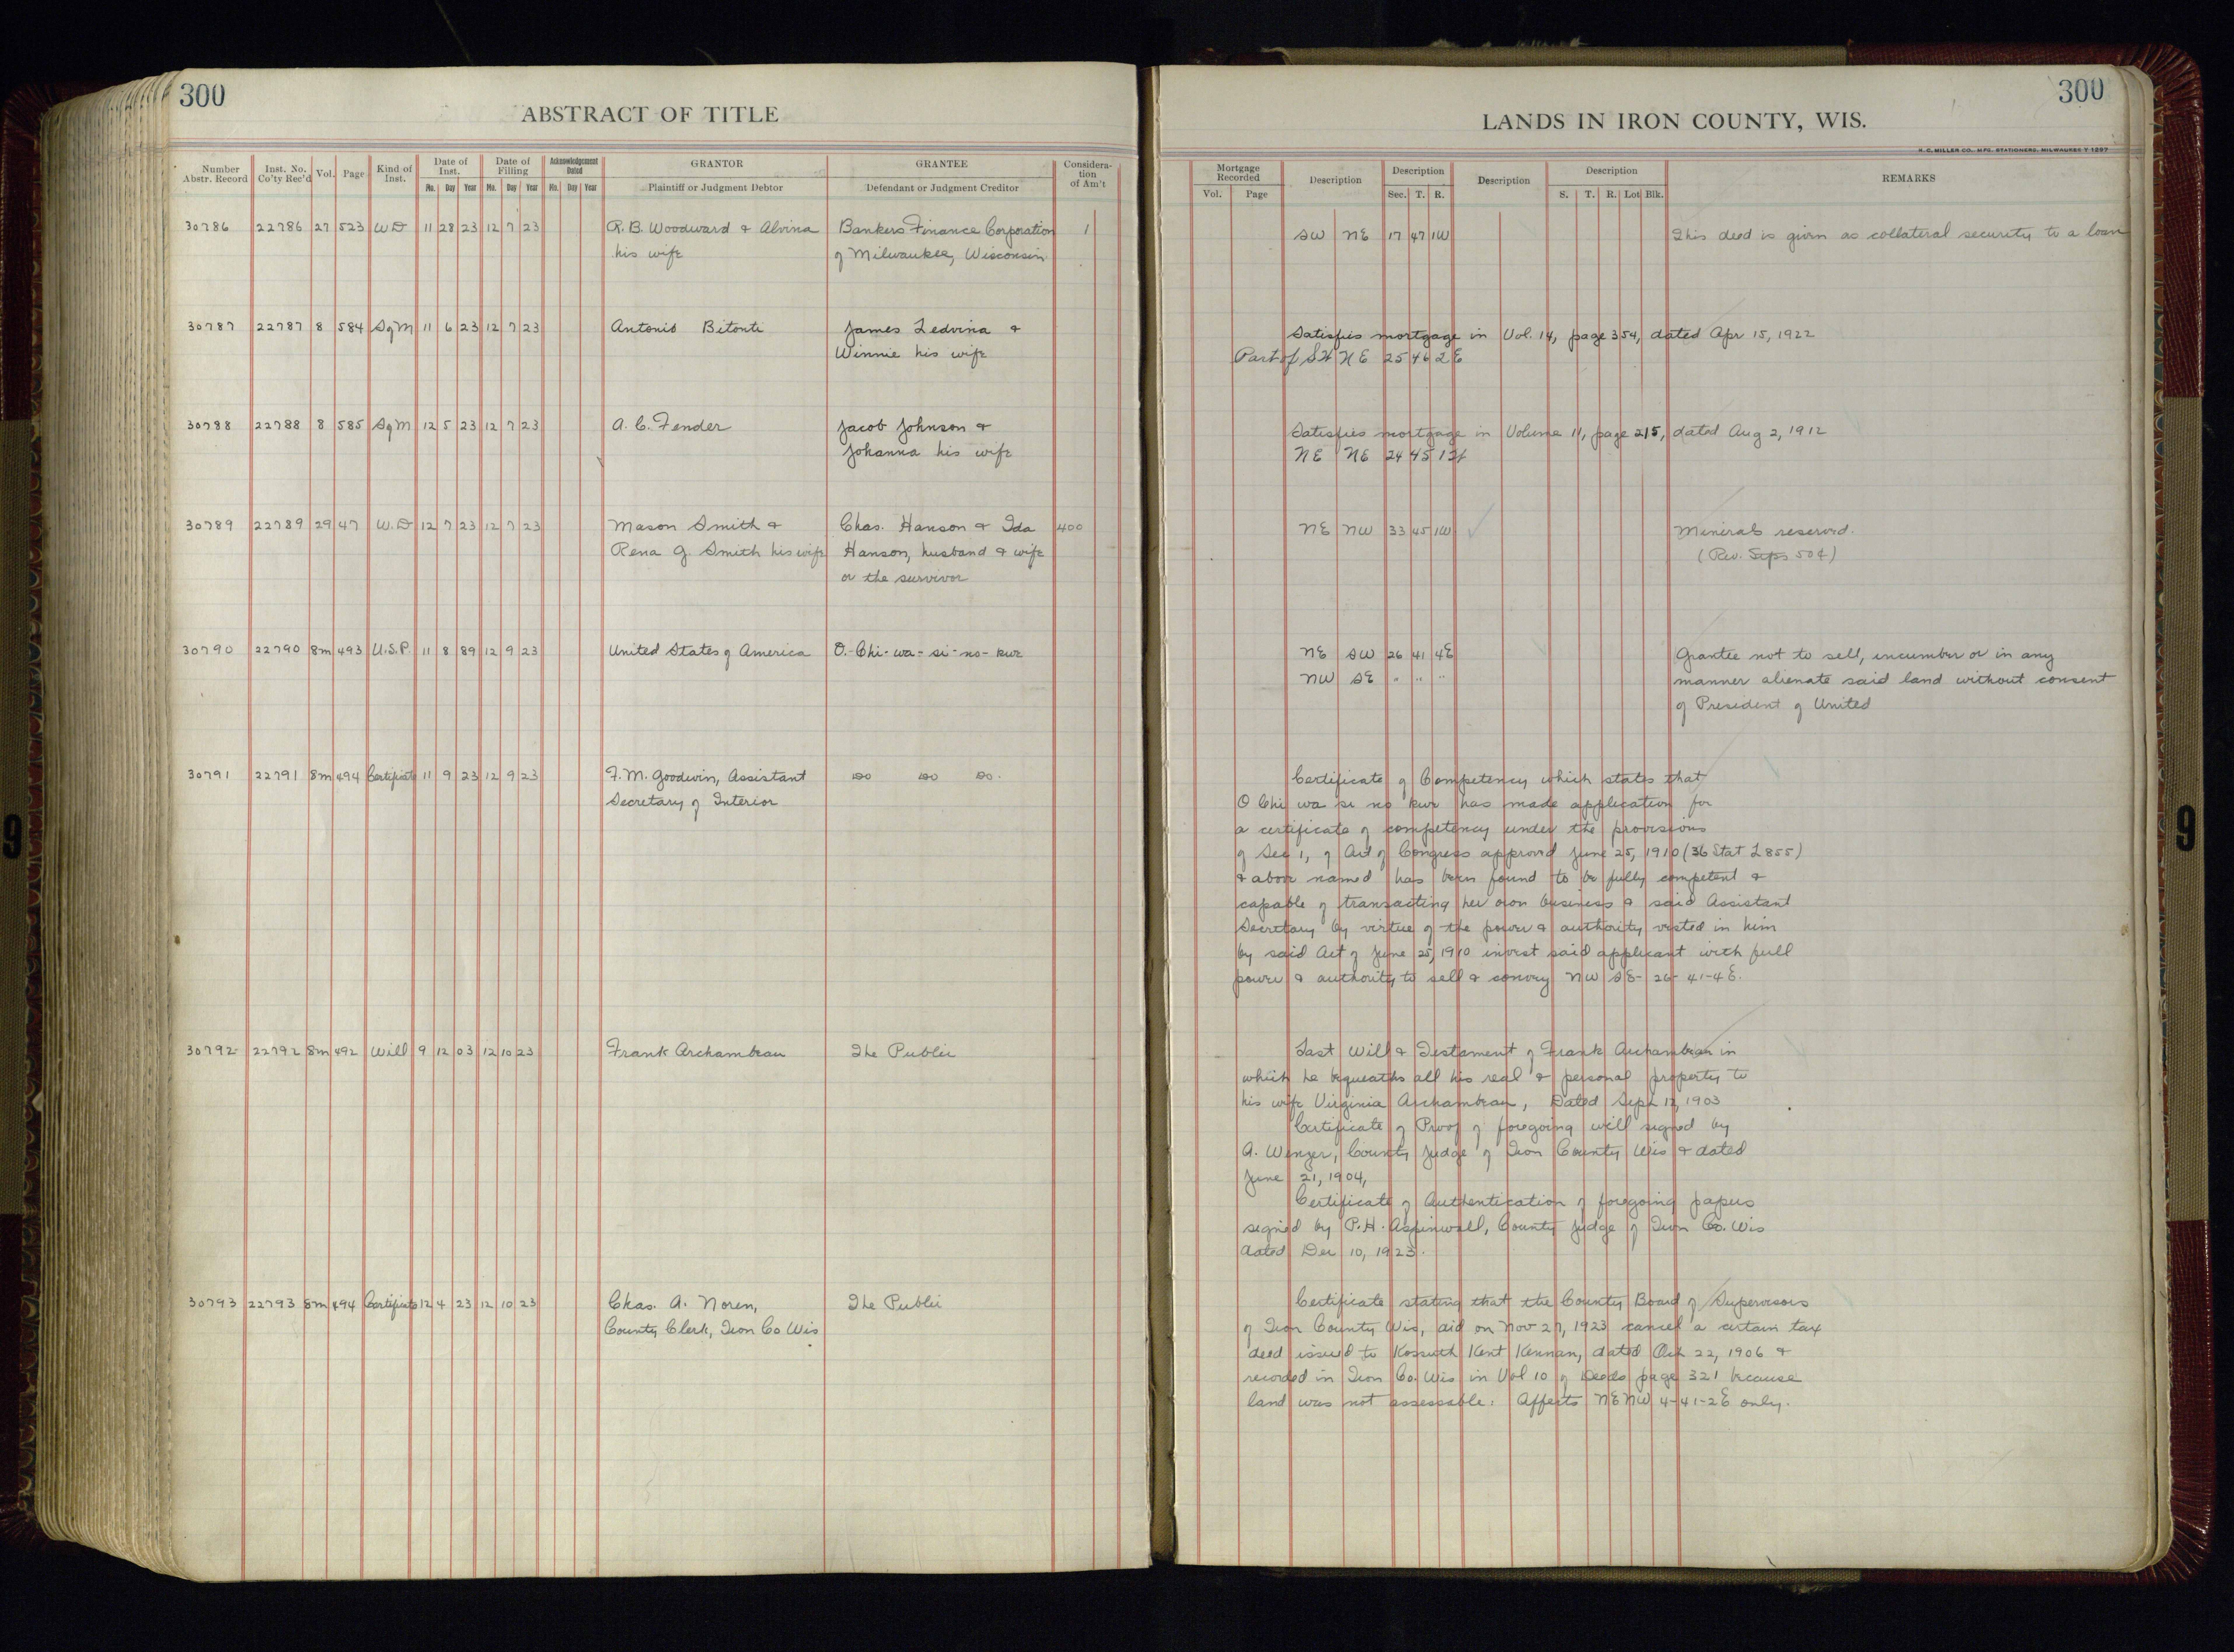 300
ABSTRACT OF TITLE
Number Abstr. Record | Inst. No. Co'ty Rec'd | Vol. | Page | Kind of Inst. | Date of Inst. Mo. Day Year | Date of Filling Mo. Day Year | Acknowledgement Dated Mo. Day Year | GRANTOR Plaintiff or Judgment Debtor | GRANTEE Defendant or Judgment Creditor | Considera-tion of Am't
30786 22786 27 523 W D 11 28 23 12 7 23 R. B. Woodward & Alvina Bankers Finance Corporation 1
his wife of Milwaukee, Wisconsin
30787 22787 8 584 Sg M 11 6 23 12 7 23 Antonio Bitonti James Ledvina &
Winnie his wife
30788 22788 8 585 Sg M 12 5 23 12 7 23 A. C. Fender Jacob Johnson &
Johanna his wife
30789 22789 29 47 W. D 12 7 23 12 7 23 Mason Smith & Chas. Hanson & Ida 400
Rena G. Smith his wife Hanson, husband & wife
or the survivor
30790 22790 8m 493 U.S.P. 11 8 89 12 9 23 United States of America O.-Chi-wa-si-no-kwe
30791 22791 8m 494 Certificate 11 9 23 12 9 23 F. M. Goodwin, Assistant do do do.
Secretary of Interior
30792 22792 8m 492 Will 9 12 03 12 10 23 Frank Archambeau The Public
30793 22793 8m 494 Certificate 12 4 23 12 10 23 Chas. A. Noren, The Public
County Clerk, Iron Co Wis
300
LANDS IN IRON COUNTY, WIS.
H. C. MILLER CO., MFG. STATIONERS, MILWAUKEE T 1297
Mortgage Recorded Vol. Page | Description | Description Sec. T. R. | Description | Description S. T. R. Lot Blk. | REMARKS
SW NE 17 47 1W This deed is given as collateral security to a loan
Satisfies mortgage in Vol. 14, page 354, dated Apr 15, 1922
Part of SW NE 25 46 2 E
Satisfies mortgage in Volume 11, page 215, dated Aug 2, 1912
NE NE 24 45 1
NE NW 33 45 1W Minerals reserved.
(Rev. Stps 50¢)
NE SW 26 41 4E Grantee not to sell, incumber or in any
NW SE " " " manner alienate said land without consent
of President of United
Certificate of Competency which states that
O Chi wa si no kwe has made application for
a certificate of competency under the provisions
of Sec 1, of Act of Congress approved June 25, 1910 (36 Stat L 855)
& above named has been found to be fully competent &
capable of transacting her own business & said Assistant
Secretary by virtue of the power & authority vested in him
by said Act of June 25, 1910 invest said applicant with full
power & authority to sell & convey NW SE- 26- 41-4E.
Last Will & Testament of Frank Archambeau in
which he bequeaths all his real & personal property to
his wife Virginia Archambeau, Dated Sept 12, 1903
Certificate of Proof of foregoing will signed by
A. Wenzer, County Judge of Iron County Wis & dated
June 21, 1904,
Certificate of Authentication of foregoing papers
signed by P. H. Aspinwall, County Judge of Iron Co. Wis
dated Dec 10, 1923.
Certificate stating that the County Board of Supervisors
of Iron County Wis, did on Nov 27, 1923 cancel a certain tax
deed issued to Kossuth Kent Kennan, dated Oct 22, 1906 &
recorded in Iron Co. Wis in Vol 10 of Deeds page 321 because
land was not assessable. Affects NE NW 4-41-2E only.
9
9